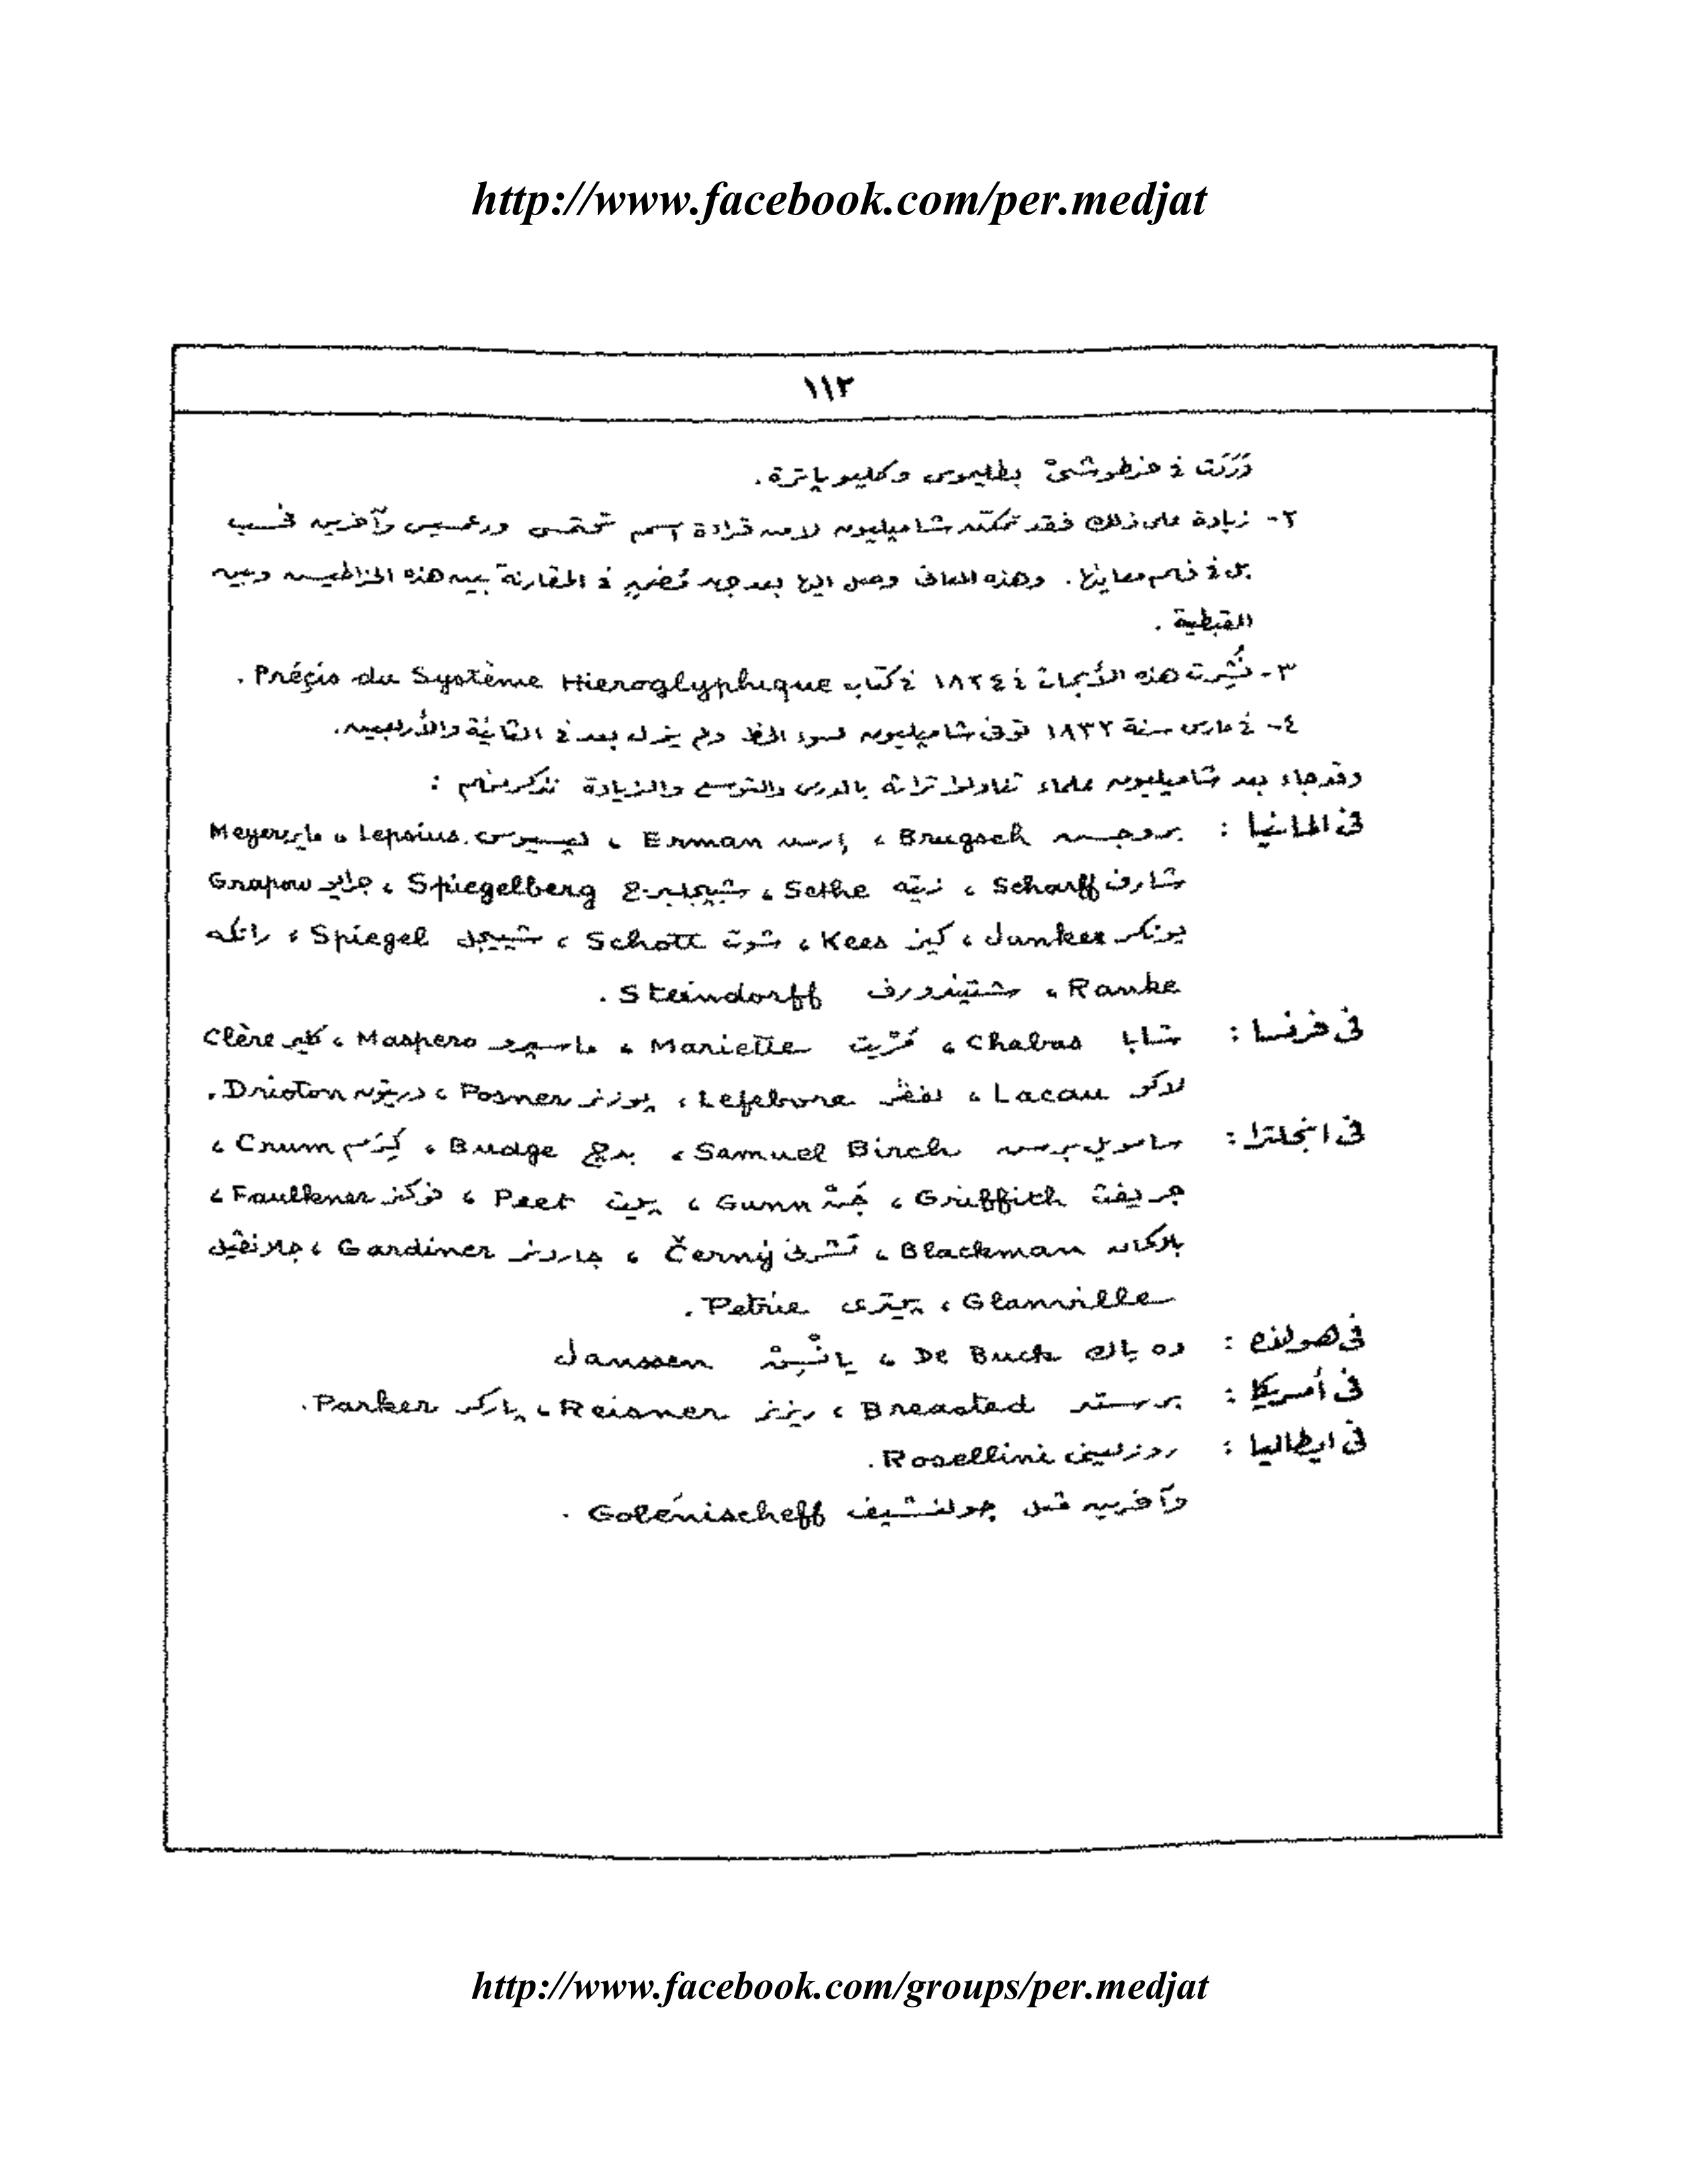 http://www.facebook.com/per.medjat
١١٢
وَرَدَت في خرطوشىْ بطليموس وكليوباترة .
٢- زيادة على ذلك فقد تمكن شامپليون لا من قراءة اسم تحتمس ورعمسيس وآخرين فحسب
بل في فهم معانيها . وهذه المعانى وصل اليها بعد جهد مُضنٍ في المقارنة بين هذه الخراطيش وبين
القبطية .
٣- نُشِرت هذه الأبحاث في ١٨٢٤ في كتاب Préçis du Système Hieroglyphique .
٤- في مارس سنة ١٨٣٢ توفى شامپليون لسوء الحظ ولم يزل بعد في الثانية والأربعين .
وقد جاء بعد شامپليون علماء تناولوا تراثه بالدرس والتوسع والزيادة نذكر منهم :
فى المانيا : بروجش Brugsch ، إرمن Erman ، لپسيوس Lepsius ، ماير Meyer
شارف Scharff ، زيته Sethe ، شپيجلبرج Spiegelberg ، جراپو Grapow
يونكر Junker ، كيز Kees ، شوت Schott ، شپيجل Spiegel ، رانكه
Ranke ، شتيندورف Steindorff .
فى فرنسا : شابا Chabas ، مَرْيت Mariette ، ماسپرو Maspero ، كلير Clère
لاكو Lacau ، لفڤر Lefebvre ، پوزنر Posner ، دريتون Drioton .
فى انجلترا : صامويل برش Samuel Birch ، بدج Budge ، كرَم Crum ،
جريفث Griffith ، جَنْ Gunn ، پيت Peet ، فوكنر Faulkner ،
بلاكمان Blackman ، تشرنى Černý ، جاردنر Gardiner ، جلانڤيل
Glanville ، پيترى Petrie .
فى هولنده : ده باك De Buck ، يانْسِنْ Janssen
فى أمريكا : برستد Breasted ، ريزنر Reisner ، پاركر Parker .
فى ايطاليا : روزليني Rosellini .
وآخرين مثل جولنشيف Golénischeff .
http://www.facebook.com/groups/per.medjat